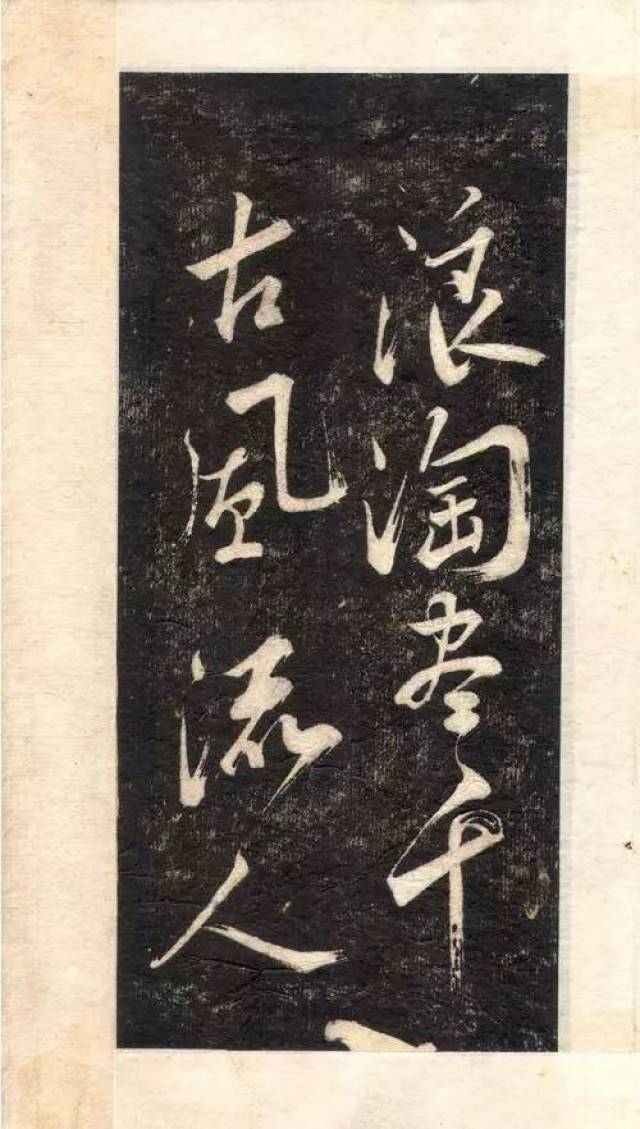 浪淘盡千
古風流人